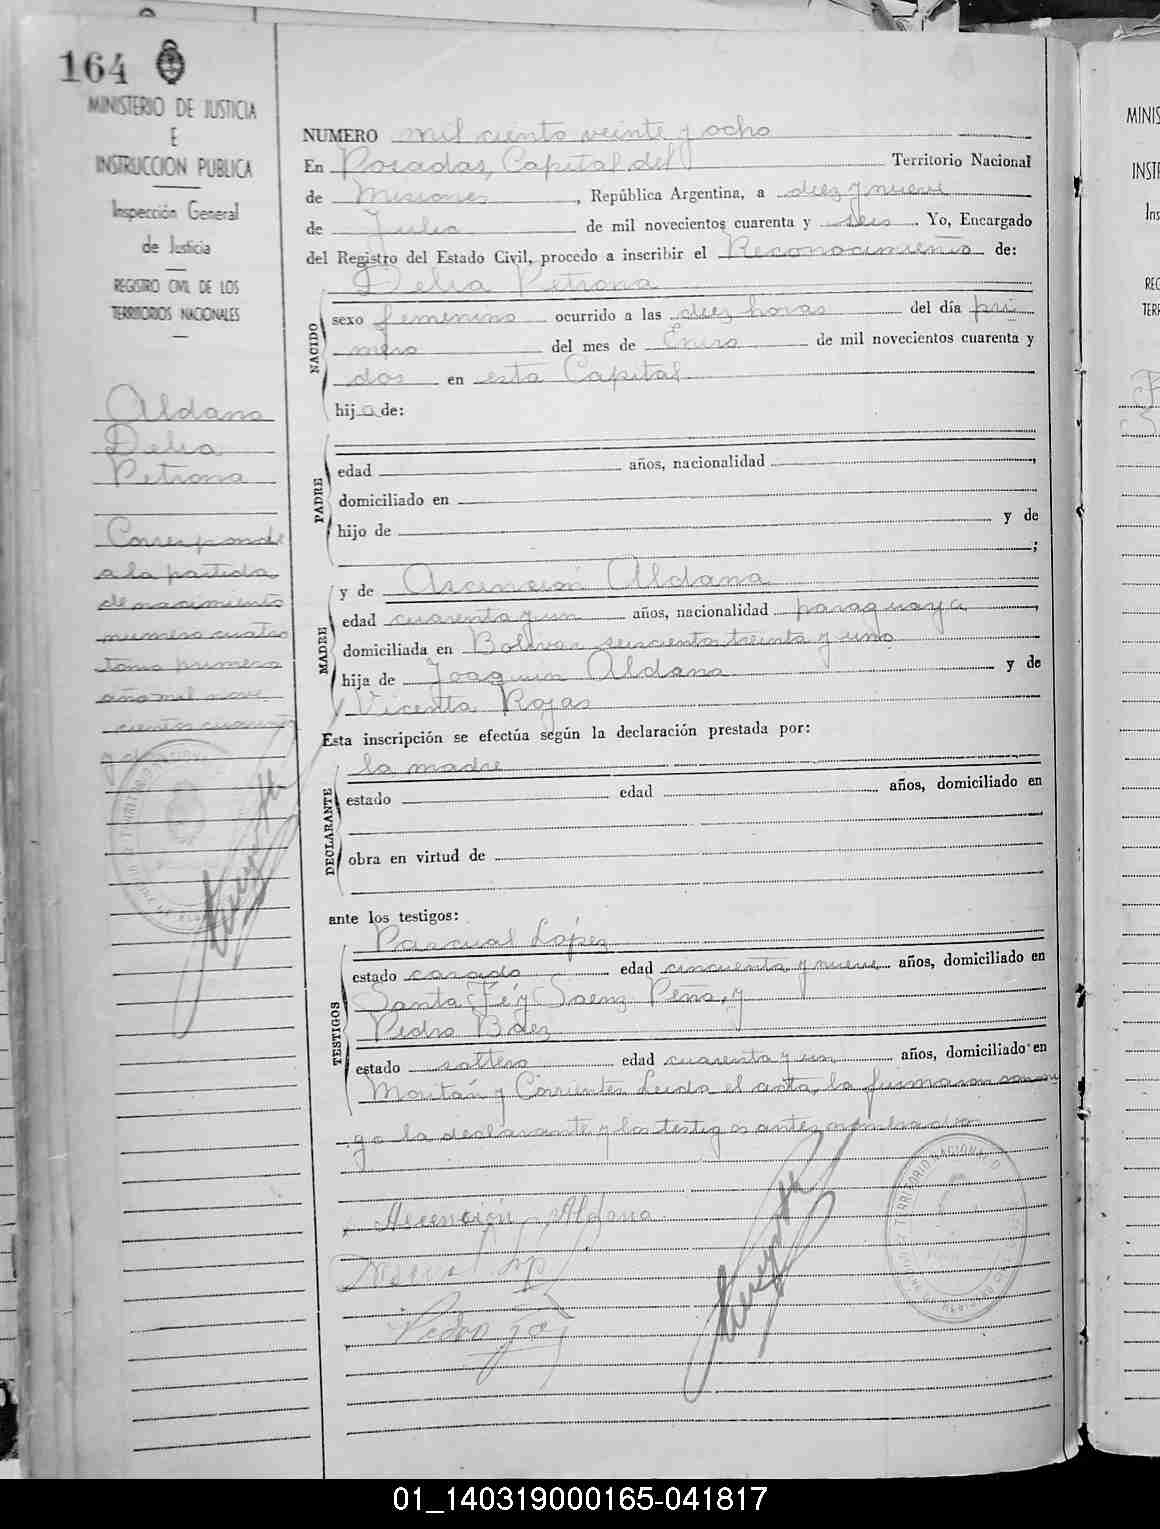 164
MINISTERIO DE JUSTICIA
E
INSTRUCCION PUBLICA
Inspección General
de Justicia
REGISTRO CIVIL DE LOS
TERRITORIOS NACIONALES
Aldana
Delia
Petrona
Corresponde
a la partida
de nacimiento
numero cuatro
tomo primero
año mil nove
cientos cuarenta
y
NUMERO mil ciento veinte y ocho
En Posadas, Capital del Territorio Nacional
de Misiones, República Argentina, a diez y nueve
de Julio de mil novecientos cuarenta y seis. Yo, Encargado
del Registro del Estado Civil, procedo a inscribir el Reconocimiento de:
Delia Petrona
NACIDO
sexo femenino ocurrido a las diez horas del día pri
mero del mes de Enero de mil novecientos cuarenta y
dos en esta Capital
hija de:
PADRE
edad años, nacionalidad ,
domiciliado en
hijo de y de
;
MADRE
y de Ascención Aldana
edad cuarenta y un años, nacionalidad paraguaya,
domiciliada en Bolivar seiscientos treinta y uno
hija de Joaquin Aldana y de
Vicenta Rojas
Esta inscripción se efectúa según la declaración prestada por:
DECLARANTE
la madre
estado edad años, domiciliado en
obra en virtud de
ante los testigos:
TESTIGOS
Pascual López
estado casado edad cincuenta y nueve años, domiciliado en
Santa Fé y Saenz Peña, y
Pedro Báez
estado soltero edad cuarenta y un años, domiciliado en
y Corrientes Leida el acta, la firmaron conmi
go la declarante y los testigos antes nombrados
Ascención Aldana
Pedro
MINIS
INST
Ins
REG
TERR
01_140319000165-041817